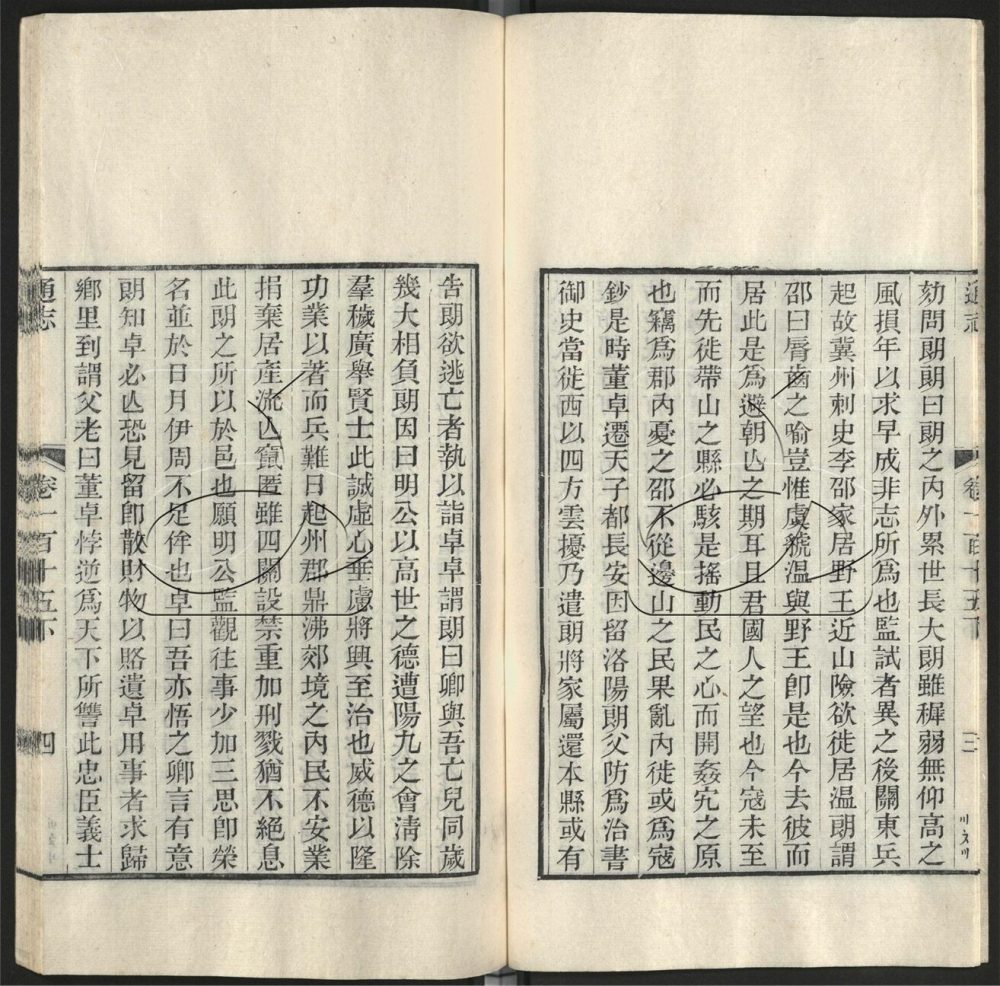 通志
卷一百十五下
三
劾問朗朗曰朗之內外累世長大朗雖穉弱無仰高之
風損年以求早成非志所爲也監試者異之後關東兵
起故冀州刺史李邵家居野王近山險欲徙居温朗謂
邵曰脣齒之喻豈惟虞虢温與野王卽是也今去彼而
居此是爲避朝亾之期耳且君國人之望也今寇未至
而先徙帶山之縣必駭是搖動民之心而開姦宄之原
也竊爲郡內憂之邵不從邊山之民果亂內徙或爲寇
鈔是時董卓遷天子都長安因留洛陽朗父防爲治書
御史當徙西以四方雲擾乃遣朗將家屬還本縣或有
告朗欲逃亡者執以詣卓卓謂朗曰卿與吾亡兒同歲
幾大相負朗因曰明公以高世之德遭陽九之會清除
羣穢廣舉賢士此誠虛心垂慮將興至治也威德以隆
功業以著而兵難日起州郡鼎沸郊境之內民不安業
捐棄居產流亾竄匿雖四關設禁重加刑戮猶不絕息
此朗之所以於邑也願明公監觀往事少加三思卽榮
名並於日月伊周不足侔也卓曰吾亦悟之卿言有意
朗知卓必亾恐見留卽散財物以賂遺卓用事者求歸
鄉里到謂父老曰董卓悖逆爲天下所讐此忠臣義士
通志
卷一百十五下
四